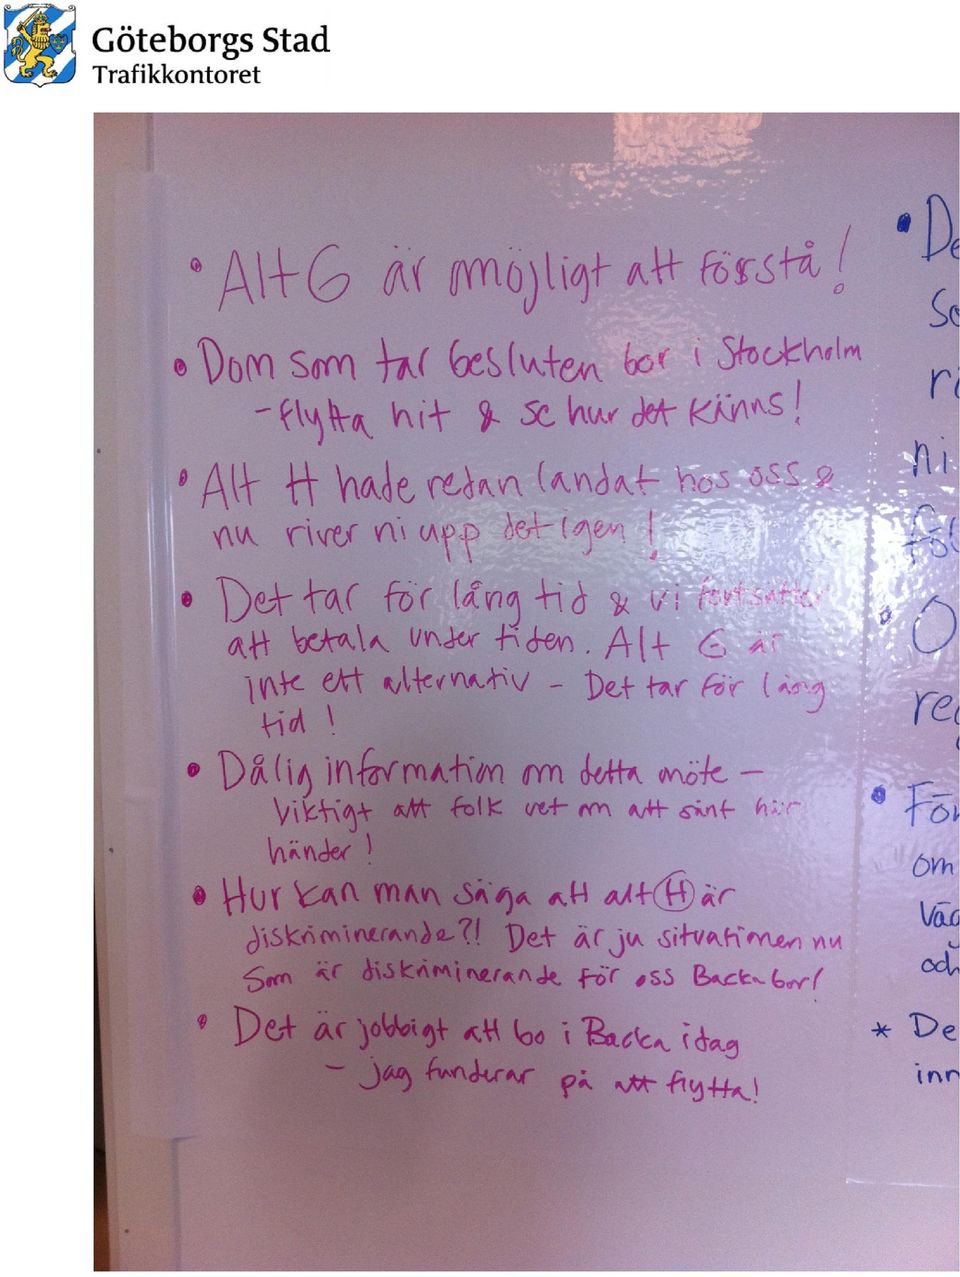 Göteborgs Stad
Trafikkontoret
• Alt G är möjligt att förstå!
• Dom som tar besluten bor i Stockholm
- flytta hit & se hur det känns!
• Alt H hade redan landat hos oss &
nu river ni upp det igen!
• Det tar för lång tid & vi fortsätter
att betala under tiden. Alt G är
inte ett alternativ - Det tar för lång
tid!
• Dålig information om detta möte -
viktigt att folk vet om att sånt här
händer!
• Hur kan man säga att alt H är
diskriminerande?! Det är ju situationen nu
som är diskriminerande för oss Backabor!
• Det är jobbigt att bo i Backa idag
- jag funderar på att flytta!
• De
So
ri
ni
föl
• O
reg
• För
om
väg
och
* De
inn